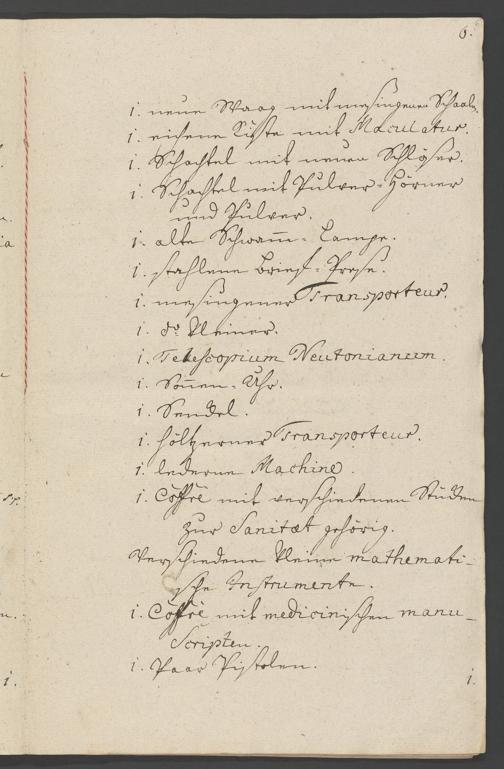 6.
1. neue Waag mit mesingenen Schaale.
1. eichene Kiste mit Maculatur.
1. Schachtel mit neuen Schlößer.
1. Schachtel mit Pulver-Hörner
und Pulver.
1. alte Schwam̄-Lampe.
1. stahlene Brief-Prese.
1. mesingener Transporteur.
1. do kleiner.
1. Telescopium Neutonianum.
1. Son̄en-Uhr.
1. Sendel.
1. höltzerner Transporteur.
1. lederne Machine.
1. Coffre mit verschiedenen Stücken
zur Sanitæt gehörig.
Verschiedene kleine mathemati-
sche Instrumente.
1. Coffre mit medicinischen manu-
Scripten.
1. Paar Pistolen.
1.